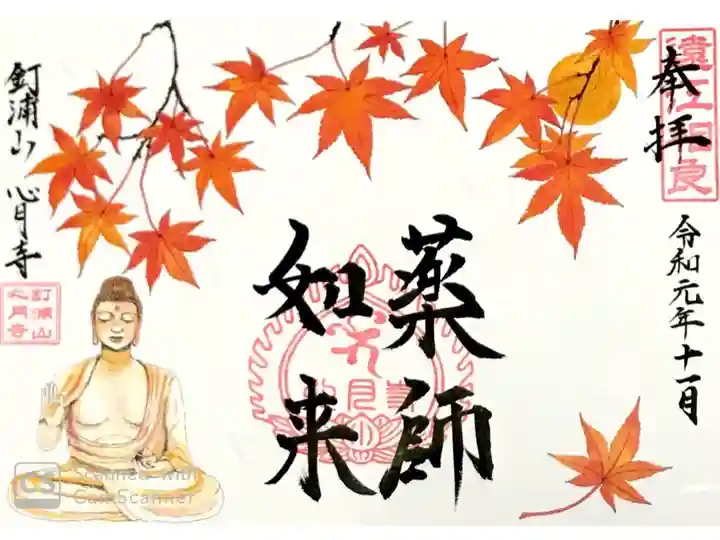 奉拝
遠江相良
令和元年十一月
薬師
如来
釘浦山 心月寺
釘浦山
心月寺
Scanned with
CamScanner